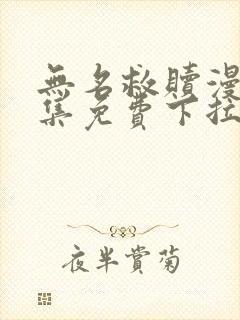 無名救贖漫
集免費下拉
夜半賞菊